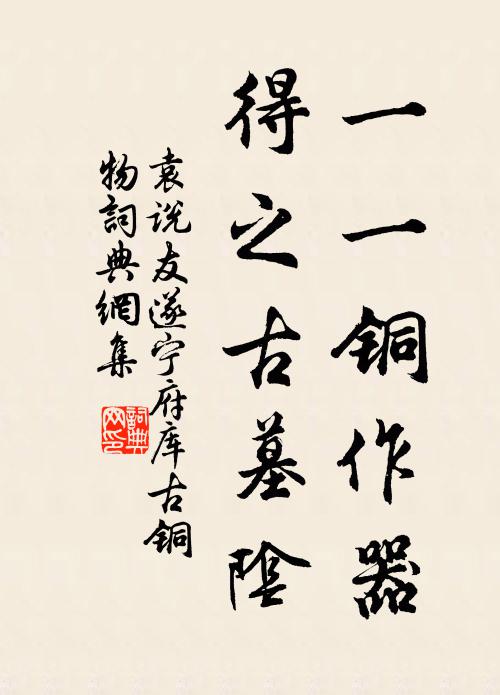 一一铜作器
得之古墓陰
袁说友遂宁府库古铜
物詞典網集
詞典
网印